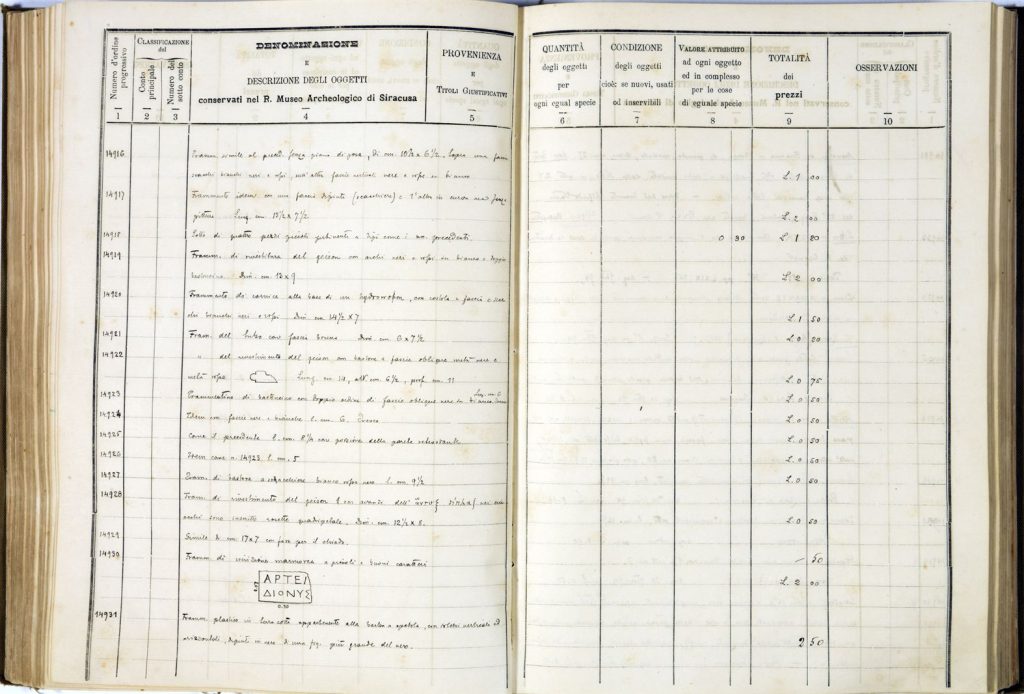 Numero d'ordine progressivo
CLASSIFICAZIONE del
Conto principale
Numero del sotto conto
DENOMINAZIONE
E
DESCRIZIONE DEGLI OGGETTI
conservati nel R. Museo Archeologico di Siracusa
PROVENIENZA
E
TITOLI GIUSTIFICATIVI
QUANTITÀ
degli oggetti
per
ogni egual specie
CONDIZIONE
degli oggetti
cioè: se nuovi, usati
od inservibili
VALORE ATTRIBUITO
ad ogni oggetto
ed in complesso
per le cose
di eguale specie
TOTALITÀ
dei
prezzi
OSSERVAZIONI
1 2 3 4 5 6 7 8 9 10
14916 Framm. simile al preced. senza piano di posa, di cm. 10½ x 6½. Sopra una fascia
bianchi neri e rossi, sull'altra fascie verticali nere e rosse su bianco L. 1 00
14917 Frammento idem con una faccia dipinta (scacchiere) e l'altra in curva ma senza
pitture Lung. cm. 15½ x 7½ L. 2 00
14918 Lotto di quattro pezzi piccoli pertinenti a tipi come i nn. precedenti. 0 30 L. 1 20
14919 Framm. di rivestitura del geison con neri e rossi su bianco e doppio
bastoncino. Dim. cm. 13 x 9 L. 2 00
14920 Frammento di cornice alla base di un con costola e fascia a
bianchi neri e rossi Dim. cm 14½ x 7 L. 1 50
14921 Fram. del con fascie brune Dim. cm 6 x 7½ L. 0 20
14922 " del rivestimento del geison con bastone a fascie oblique metà nere e
metà rosse Lung. cm. 14, alt. cm. 6½, prof. cm. 11 L. 0 75
14923 Frammentino di bastoncino con doppio ordine di fascie oblique nere su bianco Lung. cm. 6 L. 0 50
14924 Idem con fascie nere e bianche l. cm. 6. L. 0 50
14925 Come il precedente l. cm. 8½ con porzione della parete retrostante L. 0 50
14926 Idem come n. 14923 l. cm. 5 L. 0 50
14927 Framm. di bastone a scacchiere bianco rosso nero l. cm. 9½ L. 0 50
14928 Fram. di rivestimento del geison con avanzo dell' nei cui
occhi sono inserite rosette quadripetale. Dim. cm. 12½ x 8. L. 0 50
14929 Simile di cm. 17x7 con foro per il chiodo. – 50
14930 Framm. di iscrizione marmorea a piccoli e buoni caratteri L. 2 00
ΑΡΤΕΙ
ΔΙΟΝΥΣ
0.30
14931 Framm. plastico in terra cotta appartenente alla barba a spatola, con solchi verticali ed
orizzontali, dipinti in nero di una fig. più grande del vero. 2 50